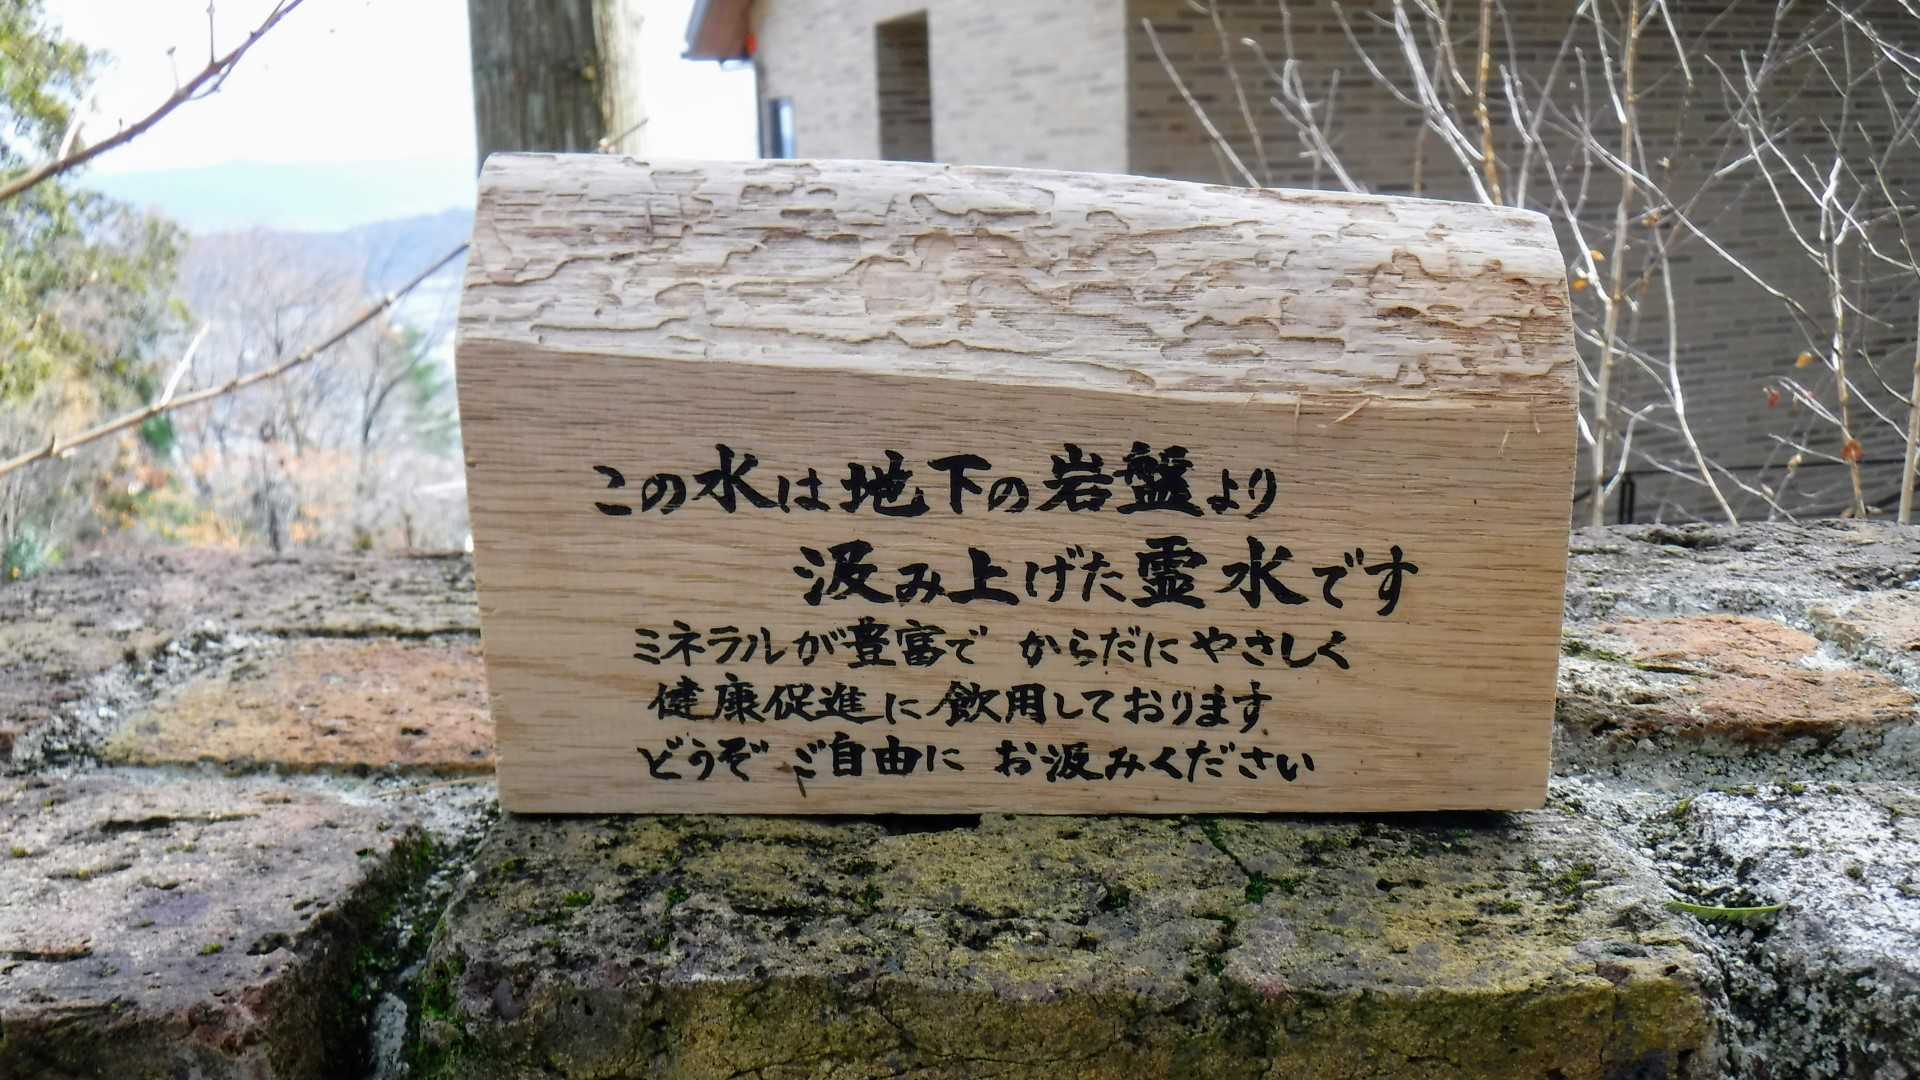 この水は地下の岩盤より
汲み上げた霊水です
ミネラルが豊富で からだにやさしく
健康促進に飲用しております
どうぞ ご自由に お汲みください